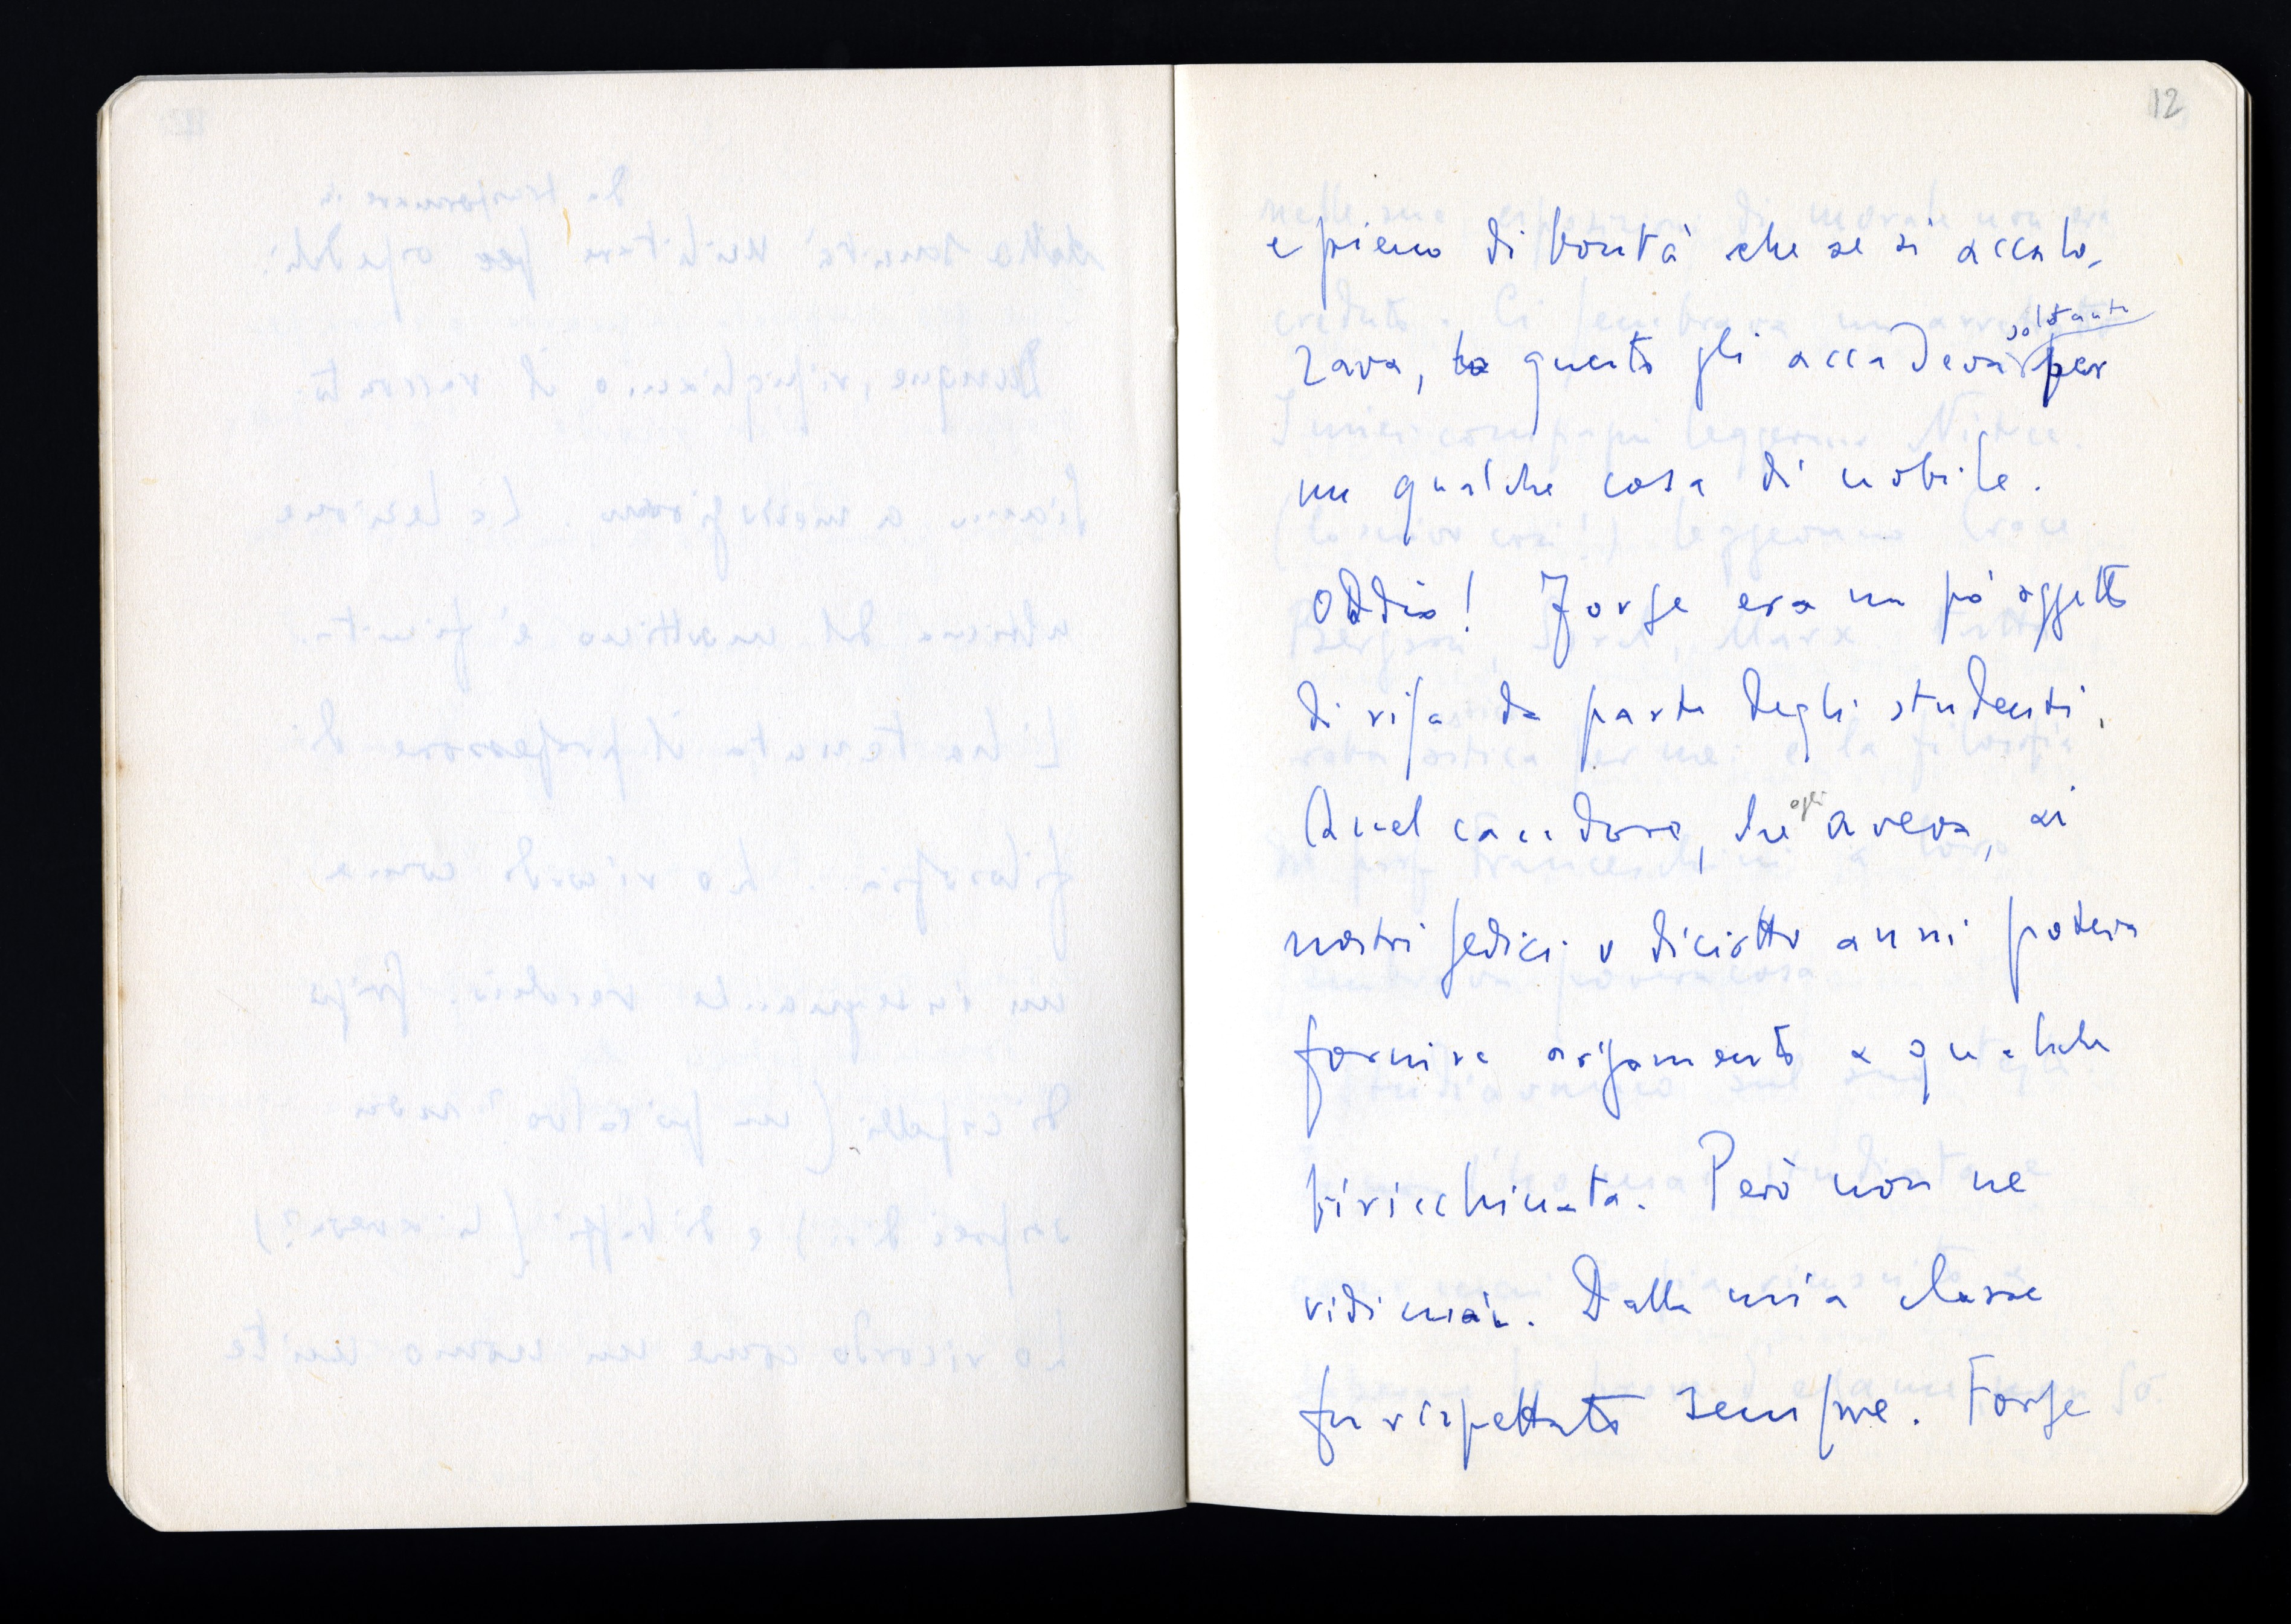 12
e pieno di bontà che se si accalo-
rava, questo gli accadeva soltanto per
un qualche cosa di nobile.
Oddio! Forse era un pò oggetto
di risa da parte degli studenti.
Quel candore, che egli aveva, ai
nostri sedici o diciotto anni poteva
fornire argomento a qualche
piricchinata. Però non ne
vidi mai. Dalla mia classe
fu rispettato sempre. Forse